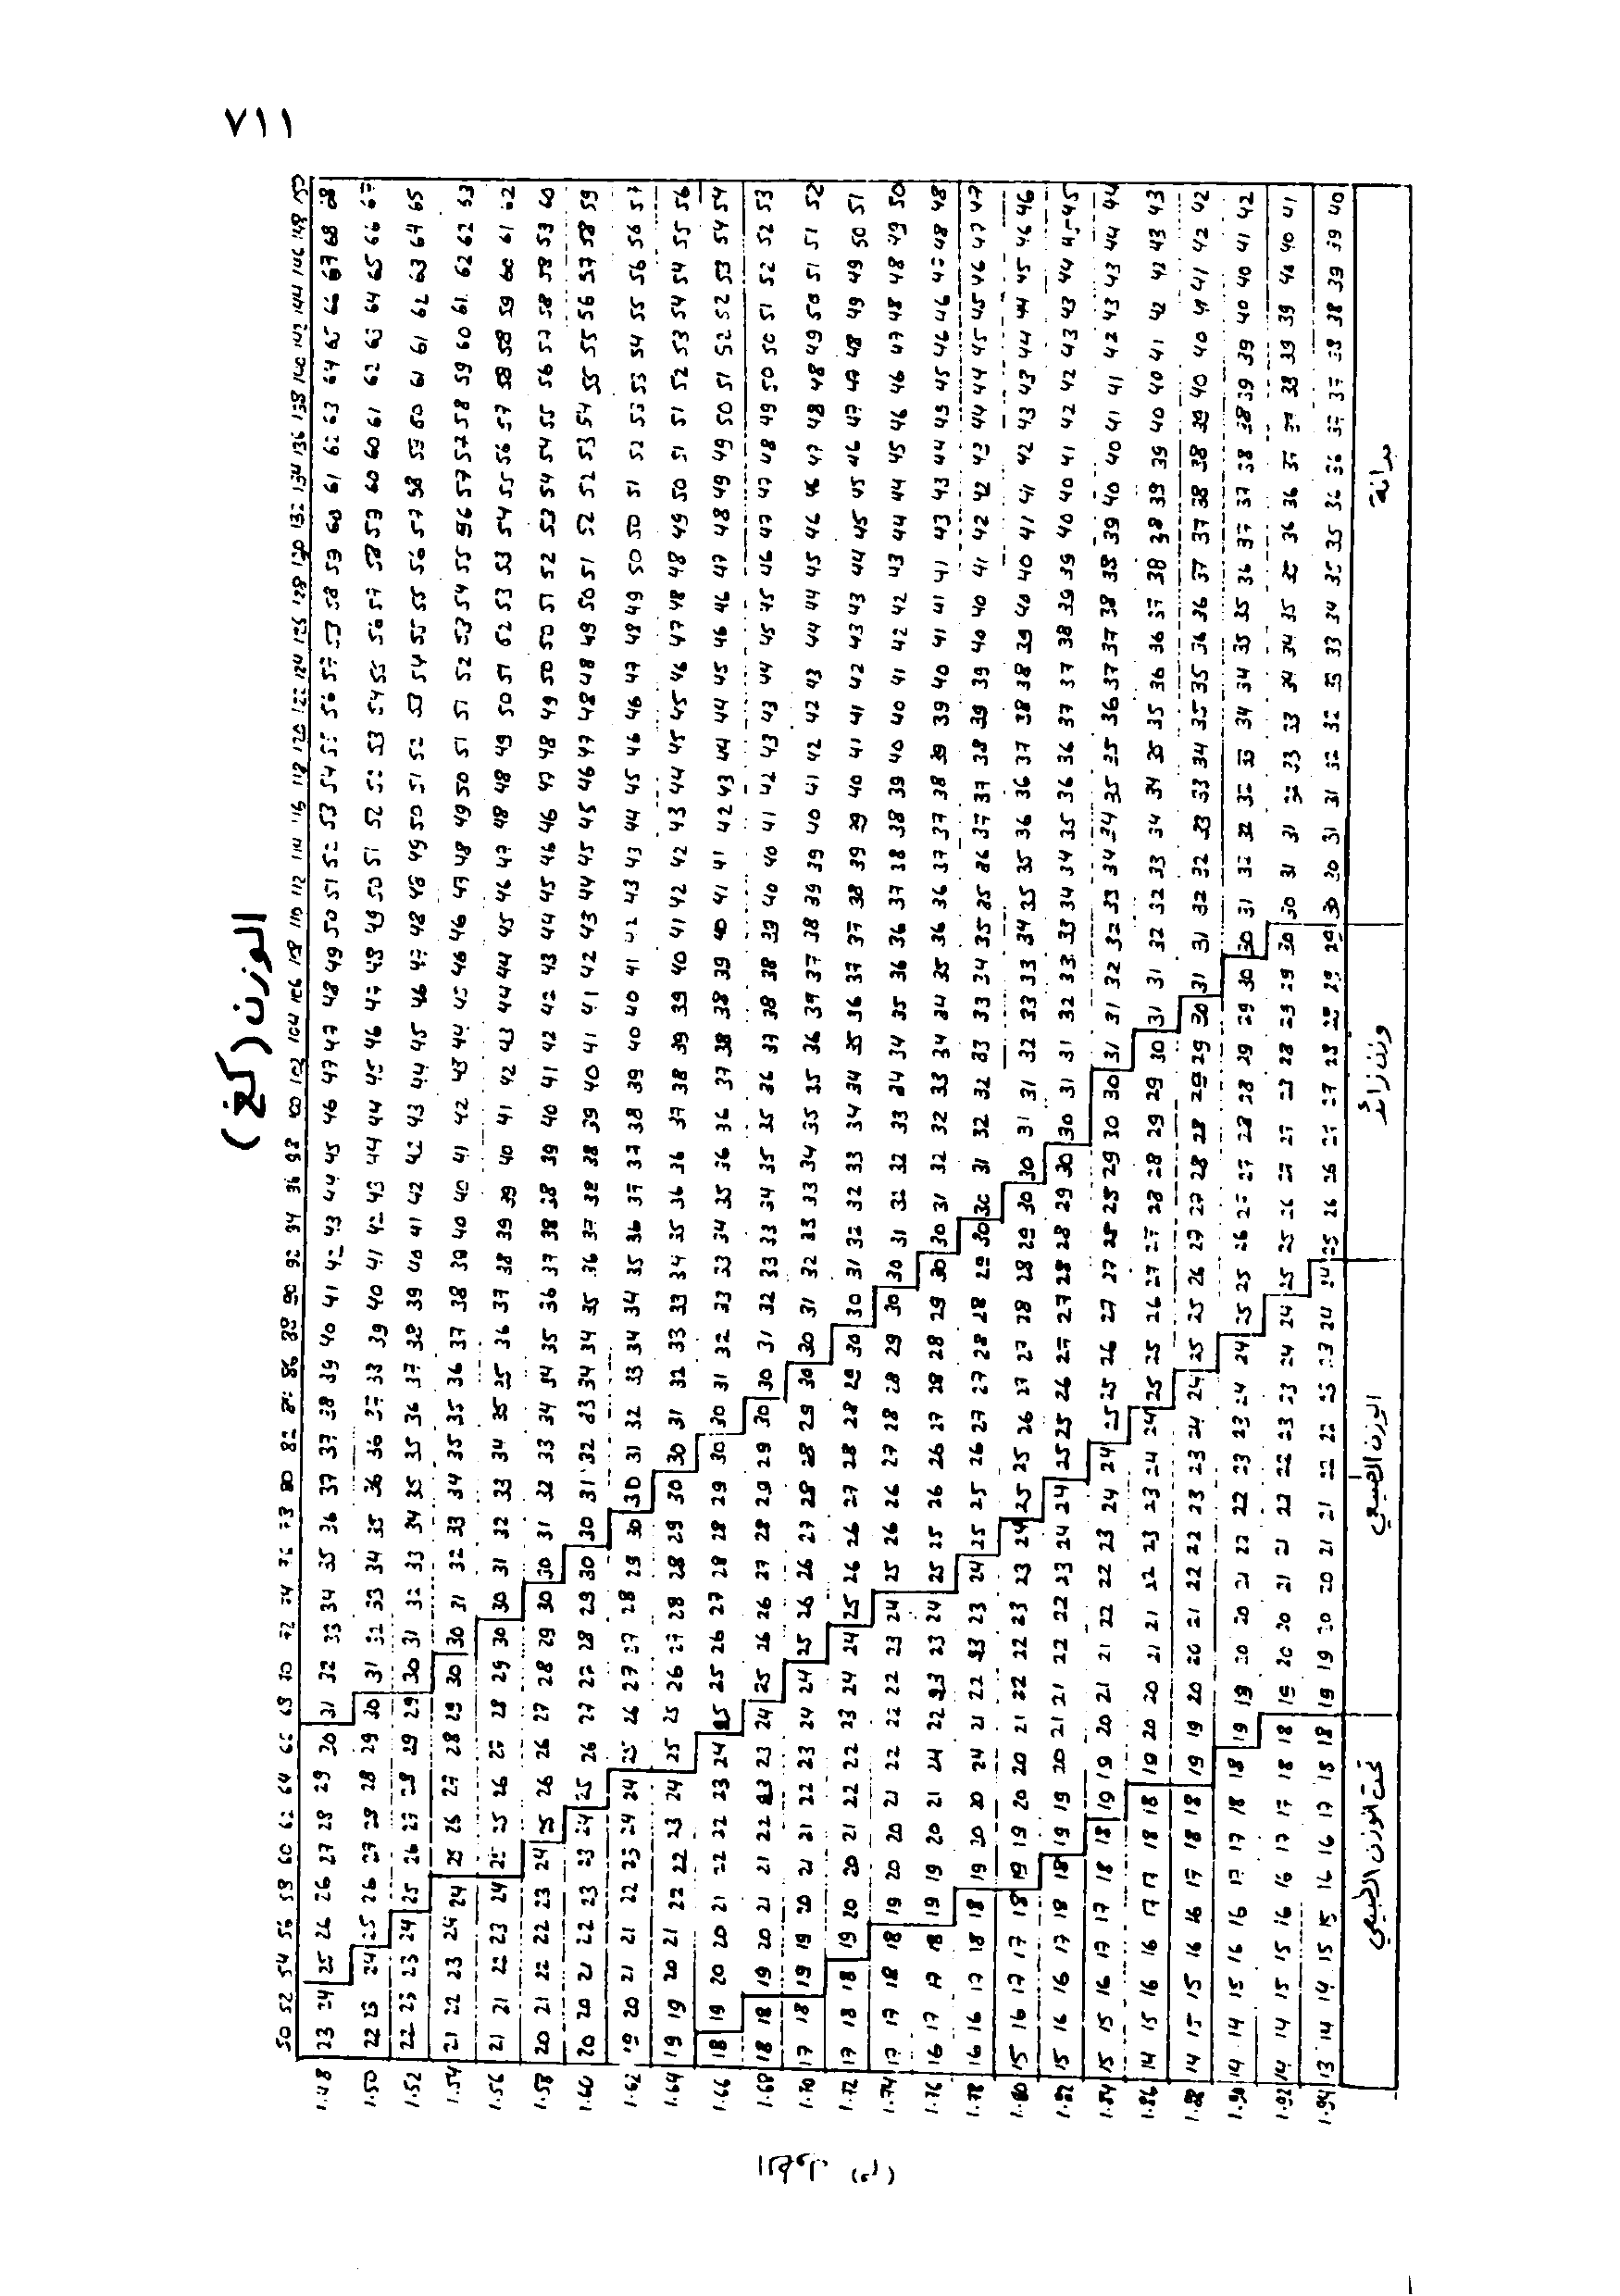 ٧١١
الوزن (كغ)
50 52 54 56 58 60 62 64 66 68 70 72 74 76 78 80 82 84 86 88 90 92 94 96 98 100 102 104 106 108 110 112 114 116 118 120 122 124 126 128 130 132 134 136 138 140 142 144 146 148 150
1.48 23 24 25 26 26 27 28 29 30 31 32 33 34 35 36 37 37 38 39 40 41 42 43 44 45 46 47 47 48 49 50 51 52 53 54 55 56 57 53 58 59 60 61 62 63 64 65 66 67 68 68
1.50 22 23 24 25 26 27 28 28 29 30 31 32 33 34 35 36 36 37 38 39 40 41 42 43 44 44 45 46 47 48 49 50 51 52 52 53 54 55 56 57 58 59 60 60 61 62 63 64 65 66 67
1.52 22 23 23 24 25 26 27 28 29 29 30 31 32 33 34 35 35 36 37 38 39 40 41 42 42 43 44 45 46 47 48 48 49 50 51 52 53 54 55 55 56 57 58 59 60 61 61 62 63 64 65
1.54 21 22 23 24 24 25 26 27 28 29 30 30 31 32 33 34 35 35 36 37 38 39 40 40 41 42 43 44 45 46 46 47 48 49 50 51 51 52 53 54 55 56 57 57 58 59 60 61 62 62 63
1.56 21 21 22 23 24 25 25 26 27 28 29 30 30 31 32 33 34 35 35 36 37 38 39 39 40 41 42 43 44 44 45 46 47 48 48 49 50 51 52 53 53 54 55 56 57 58 58 59 60 61 62
1.58 20 21 22 22 23 24 25 26 26 27 28 29 30 30 31 32 33 34 34 35 36 37 38 38 39 40 41 42 42 43 44 45 46 46 47 48 49 50 50 51 52 53 54 54 55 56 57 58 58 59 60
1.60 20 20 21 22 23 23 24 25 26 27 27 28 29 30 30 31 32 33 34 34 35 36 37 38 38 39 40 41 41 42 43 44 45 45 46 47 48 48 49 50 51 52 52 53 54 55 55 56 57 58 59
1.62 19 20 21 21 22 23 24 24 25 26 27 27 28 29 30 30 31 32 33 34 34 35 36 37 37 38 39 40 40 41 42 43 43 44 45 46 46 47 48 49 50 50 51 52 53 53 54 55 56 56 57
1.64 19 19 20 21 22 22 23 24 25 25 26 27 28 28 29 30 30 31 32 33 33 34 35 36 36 37 38 39 39 40 41 42 42 43 44 45 45 46 47 48 48 49 50 51 51 52 53 54 54 55 56
1.66 18 19 20 20 21 22 22 23 24 25 25 26 27 28 28 29 30 30 31 32 33 33 34 35 36 36 37 38 38 39 40 41 41 42 43 44 44 45 46 46 47 48 49 49 50 51 52 52 53 54 54
1.68 18 18 19 20 21 21 22 23 23 24 25 26 26 27 28 29 29 30 30 31 32 33 33 34 35 35 36 37 38 38 39 40 40 41 42 43 43 44 45 45 46 47 47 48 49 50 50 51 52 52 53
1.70 17 18 19 19 20 21 21 22 23 24 24 25 26 26 27 28 28 29 30 30 31 32 33 33 34 35 35 36 37 37 38 39 39 40 41 42 42 43 44 44 45 46 46 47 48 48 49 50 51 51 52
1.72 17 18 18 19 20 20 21 22 22 23 24 24 25 26 26 27 28 28 29 30 30 31 32 32 33 34 34 35 36 37 37 38 39 39 40 41 41 42 43 43 44 45 45 46 47 47 48 49 49 50 51
1.74 17 17 18 18 19 20 20 21 22 22 22 23 24 25 26 26 27 28 28 29 30 30 31 32 32 33 34 34 35 36 36 37 38 38 39 40 40 41 42 42 43 44 44 45 46 46 47 48 48 49 50
1.76 16 17 17 18 19 19 20 21 24 22 23 23 24 25 25 26 26 27 28 28 29 30 30 31 32 32 33 34 34 35 36 36 37 37 38 39 39 40 41 41 41 43 43 44 45 45 46 46 47 48 48
1.78 16 16 17 18 18 19 20 20 24 21 22 23 23 24 25 25 26 27 27 28 28 29 30 30 31 32 32 33 33 34 35 35 36 37 37 38 39 39 40 40 41 42 42 43 44 44 45 45 46 47 47
1.80 15 16 17 17 18 19 19 20 20 21 22 22 23 23 24 25 25 26 27 27 28 28 29 30 30 31 31 32 33 33 34 35 35 36 36 37 38 38 39 40 40 41 41 42 43 43 44 44 45 46 46
1.82 15 16 16 17 18 18 19 19 20 21 21 22 22 23 24 24 25 25 26 27 27 28 28 29 30 30 31 31 32 33 33 34 34 35 36 36 37 37 38 39 39 40 40 41 42 42 43 43 44 45 45
1.84 15 15 16 17 17 18 18 19 19 20 21 21 22 22 23 24 24 25 25 26 27 27 28 28 29 30 30 31 31 32 32 33 34 34 35 35 36 37 37 38 38 39 40 40 41 41 42 43 43 44 44
1.86 14 15 16 16 17 17 18 18 19 20 20 21 21 22 23 23 24 24 25 25 26 27 27 28 28 29 29 30 31 31 32 32 33 34 34 35 35 36 36 37 38 38 39 39 40 40 41 42 42 43 43
1.88 14 15 15 16 16 17 18 18 19 19 20 20 21 22 22 23 23 24 24 25 25 26 27 27 28 28 29 29 30 31 31 32 32 33 33 34 35 35 36 36 37 37 38 38 39 40 40 41 41 42 42
1.90 14 14 15 16 16 17 17 18 18 19 19 20 20 21 22 22 23 23 24 24 25 25 26 27 27 28 28 29 29 30 30 31 32 32 32 33 34 34 35 35 36 37 37 38 38 39 39 40 40 41 42
1.92 14 14 15 15 16 16 17 17 18 18 19 20 20 21 21 22 22 23 23 24 24 25 25 26 27 27 27 28 29 29 30 30 31 31 32 33 33 34 34 35 35 36 36 37 37 38 39 39 40 40 41
1.94 13 14 14 15 15 16 16 17 18 18 19 19 20 20 21 21 22 22 23 23 24 24 25 26 26 27 27 28 28 29 29 30 30 31 31 32 32 33 33 34 35 35 36 36 37 37 38 38 39 39 40
تحت الوزن الطبيعي
الوزن الطبيعي
وزن زائد
بدانة
الطول (م)